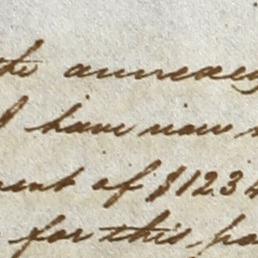 the annexe
I have now
ment of $1234
for this, pa